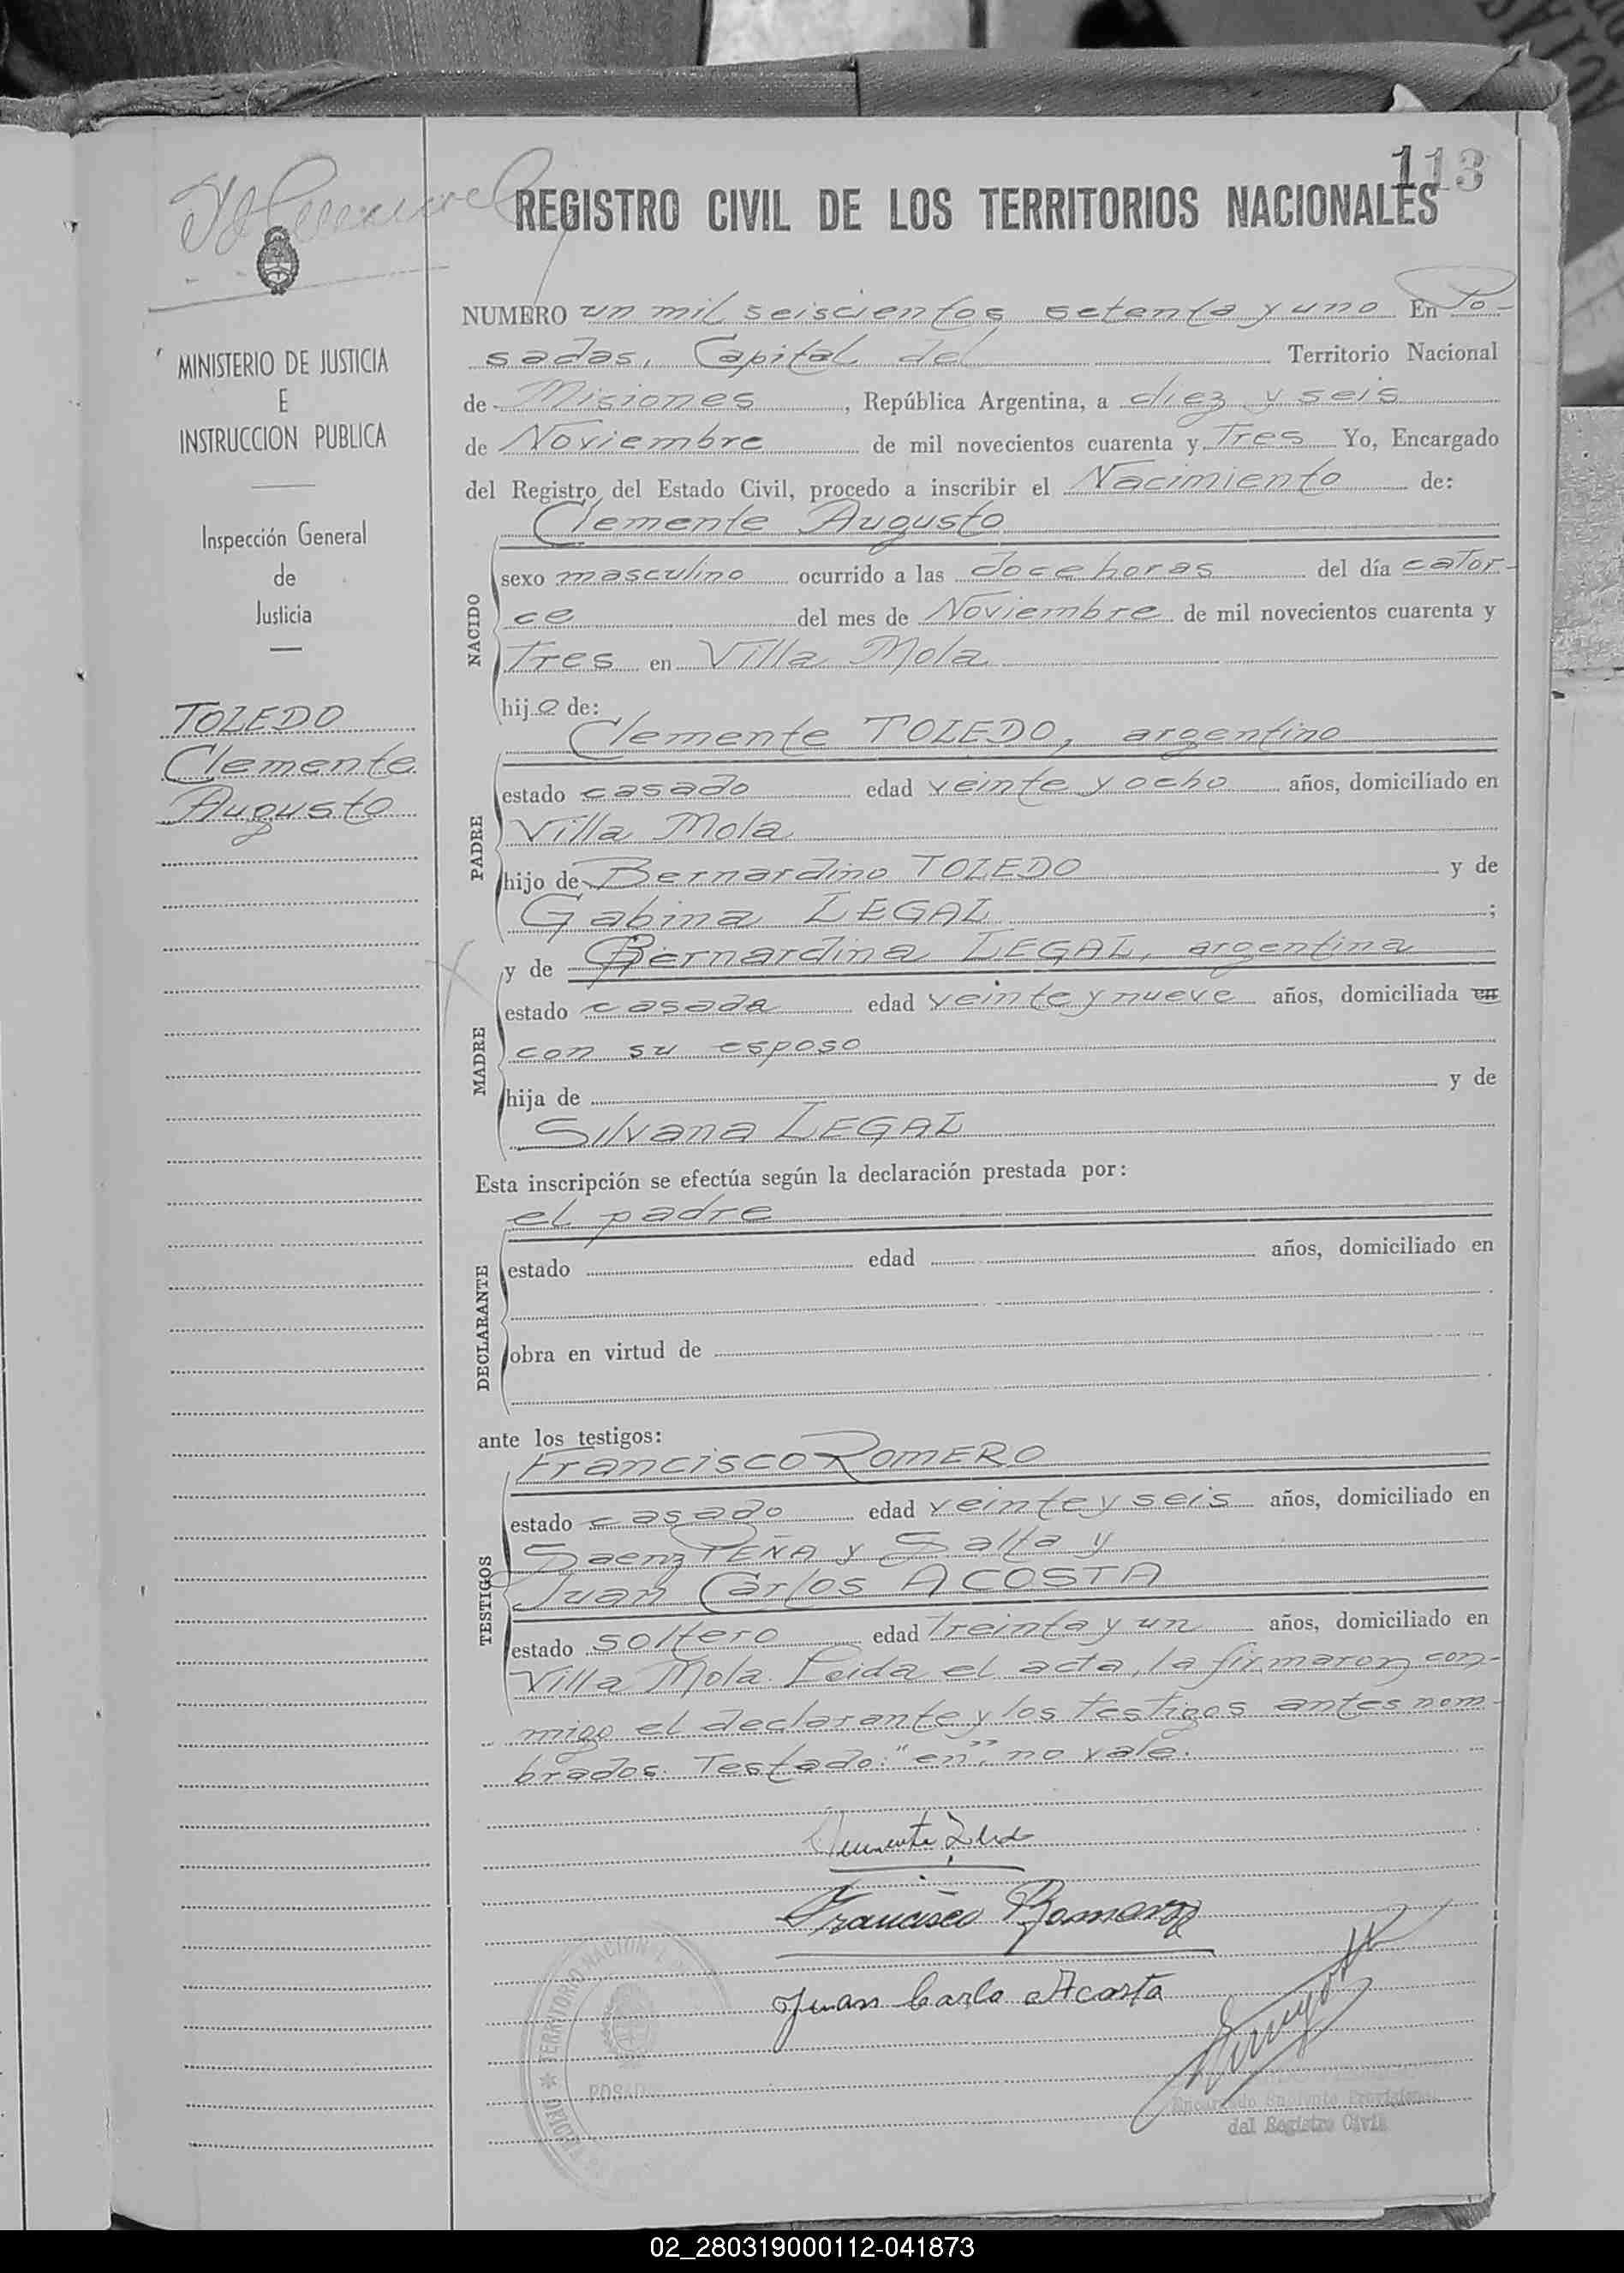 113
REGISTRO CIVIL DE LOS TERRITORIOS NACIONALES
MINISTERIO DE JUSTICIA
E
INSTRUCCION PUBLICA
Inspección General
de
Justicia
TOLEDO
Clemente
Augusto
NUMERO un mil seiscientos setenta y uno En Po-
sadas, Capital del Territorio Nacional
de Misiones, República Argentina, a diez y seis
de Noviembre de mil novecientos cuarenta y Tres Yo, Encargado
del Registro del Estado Civil, procedo a inscribir el Nacimiento de:
NACIDO
Clemente Augusto
sexo masculino ocurrido a las doce horas del día cator-
ce del mes de Noviembre de mil novecientos cuarenta y
Tres en Villa Mola
hijo de:
PADRE
Clemente TOLEDO, argentino
estado casado edad veinte y ocho años, domiciliado en
Villa Mola
hijo de Bernardino TOLEDO y de
Gabina LEGAL ;
MADRE
y de Bernardina LEGAL, argentina
estado casada edad veinte y nueve años, domiciliada en
con su esposo
hija de y de
Silvana LEGAL
Esta inscripción se efectúa según la declaración prestada por:
DECLARANTE
el padre
estado edad años, domiciliado en
obra en virtud de
ante los testigos:
TESTIGOS
Francisco ROMERO
estado casado edad veinte y seis años, domiciliado en
Saenz PEÑA y Salta y
Juan Carlos ACOSTA
estado soltero edad Treinta y un años, domiciliado en
Villa Mola. Leida el acta, la firmaron con-
migo el declarante y los testigos antes nom-
brados. Testado: "en": no vale.
Francisco Romero
Juan Carlo Acosta
TERRITORIO NACIONAL
POSADAS
Encargado Suplente Provisional
del Registro Civil
02_280319000112-041873